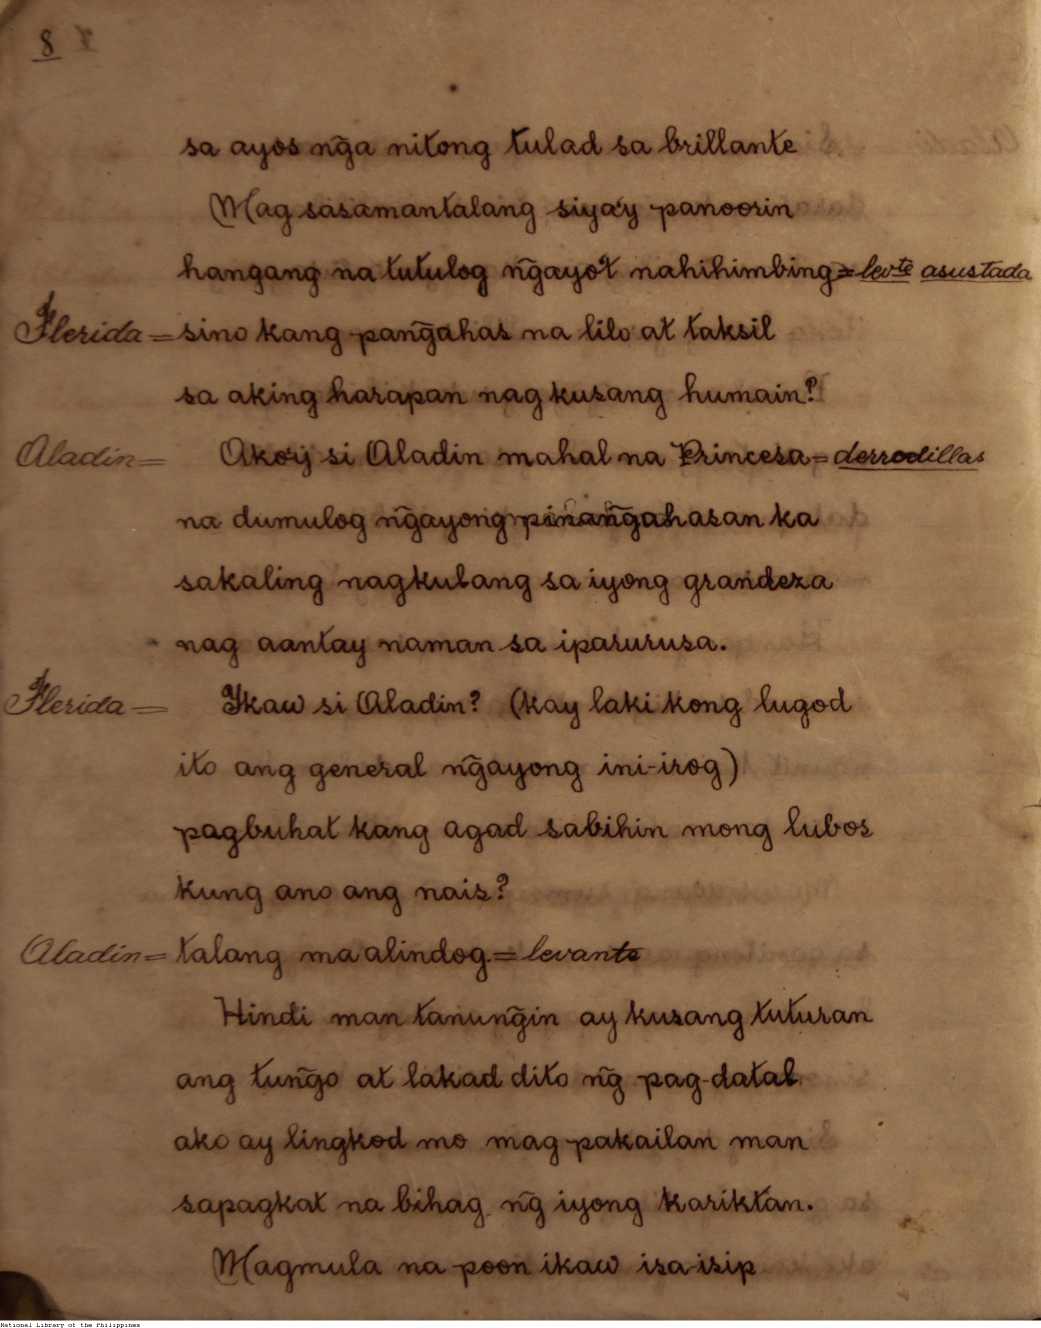 8
sa ayos ng̃a nitong tulad sa brillante
Mag sasamantalang siya'y panoorin
hangang na tutulog ng̃ayo't nahihimbing = levte asustada
Flerida = sino kang pang̃ahas na lilo at taksil
sa aking harapan nag kusang humain?
Aladin = Ako'y si Aladin mahal na Princesa = derrodillas
na dumulog ng̃ayong pinang̃ahasan ka
sakaling nagkulang sa iyong grandeza
nag aantay naman sa iparurusa.
Flerida = Ykaw si Aladin? (kay laki kong lugod
ito ang general ng̃ayong ini-irog)
pagbuhat kang agad sabihin mong lubos
kung ano ang nais?
Aladin = talang ma alindog. = levante
Hindi man tanung̃in ay kusang tuturan
ang tung̃o at lakad dito ng̃ pag-datal
ako ay lingkod mo mag-pakailan man
sapagkat na bihag ng̃ iyong kariktan.
Magmula na poon ikaw isa-isip
National Library of the Philippines